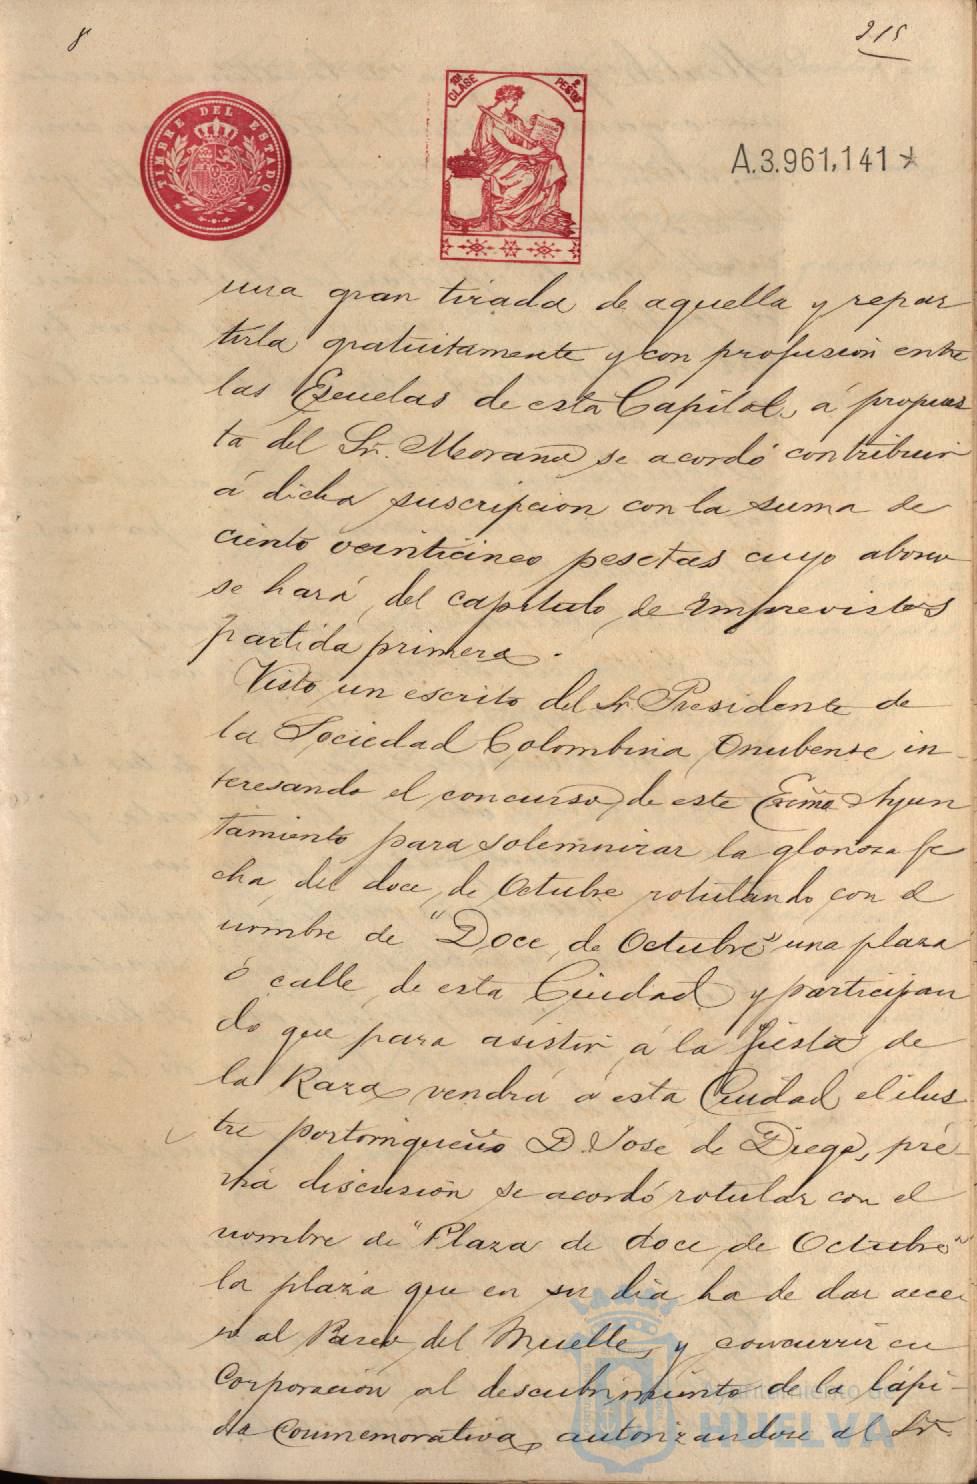 8
215
TIMBRE DEL ESTADO
11ª CLASE
2 PESETAS
A.3.961,141*
una gran tirada de aquella y repar
tirla gratuitamente y con profusión entre
las Escuelas de esta Capital, á propues
ta del Sr. Morano se acordó contribuir
á dicha suscripcion con la suma de
ciento veinticinco pesetas cuyo abono
se hará del capitulo de Imprevistos
partida primera.
Visto un escrito del Sr. Presidente de
la Sociedad Colombina Onubense in-
teresando el concurso de este Excmo Ayun
tamiento para solemnizar la gloriosa fe
cha del doce de Octubre rotulando con el
nombre de "Doce de Octubre" una plaza
ó calle de esta Ciudad y participan
do que para asistir á la fiesta de
la Raza vendrá á esta Ciudad el ilus
tre portorriqueño D. José de Diego, pré-
via discusión se acordó rotular con el
nombre de "Plaza de doce de Octubre"
la plaza que en su dia ha de dar acce-
so al Paseo del Muelle, y concurrir en
Corporación al descubrimiento de la lápi-
da conmemorativa, autorizandose al Sr.
Ayuntamiento de
HUELVA